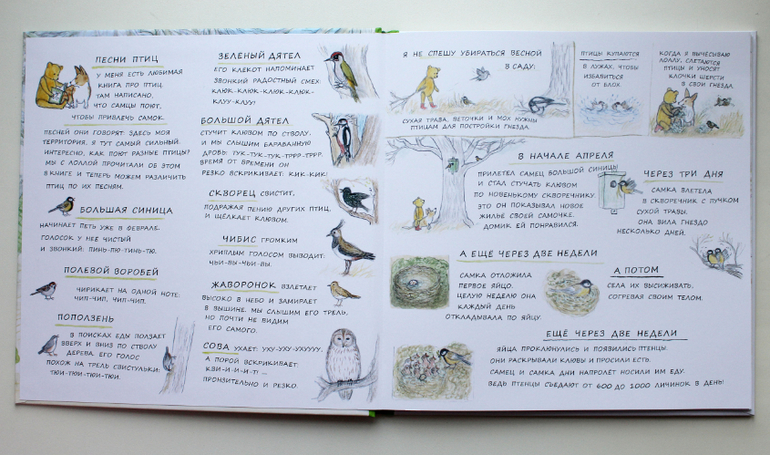 ПЕСНИ ПТИЦ
У МЕНЯ ЕСТЬ ЛЮБИМАЯ
КНИГА ПРО ПТИЦ.
ТАМ НАПИСАНО,
ЧТО САМЦЫ ПОЮТ,
ЧТОБЫ ПРИВЛЕЧЬ САМОК.
ПЕСНЕЙ ОНИ ГОВОРЯТ: ЗДЕСЬ МОЯ
ТЕРРИТОРИЯ, Я ТУТ САМЫЙ СИЛЬНЫЙ.
ИНТЕРЕСНО, КАК ПОЮТ РАЗНЫЕ ПТИЦЫ?
МЫ С ЛОЛЛОЙ ПРОЧИТАЛИ ОБ ЭТОМ
В КНИГЕ И ТЕПЕРЬ МОЖЕМ РАЗЛИЧИТЬ
ПТИЦ ПО ИХ ПЕСНЯМ.
БОЛЬШАЯ СИНИЦА
НАЧИНАЕТ ПЕТЬ УЖЕ В ФЕВРАЛЕ.
ГОЛОСОК У НЕЁ ЧИСТЫЙ
И ЗВОНКИЙ: ПИНЬ-ЛЮ-ТИНЬ-ТЮ.
ПОЛЕВОЙ ВОРОБЕЙ
ЧИРИКАЕТ НА ОДНОЙ НОТЕ:
ЧИП-ЧИП, ЧИП-ЧИП.
ПОПОЛЗЕНЬ
В ПОИСКАХ ЕДЫ ПОЛЗАЕТ
ВВЕРХ И ВНИЗ ПО СТВОЛУ
ДЕРЕВА. ЕГО ГОЛОС
ПОХОЖ НА ТРЕЛЬ СВИСТУЛЬКИ:
ТЮИ-ТЮИ-ТЮИ-ТЮИ.
ЗЕЛЁНЫЙ ДЯТЕЛ
ЕГО КЛЁКОТ НАПОМИНАЕТ
ЗВОНКИЙ РАДОСТНЫЙ СМЕХ:
КЛЮК-КЛЮК-КЛЮК-КЛЮК-
КЛУУ-КЛУУ!
БОЛЬШОЙ ДЯТЕЛ
СТУЧИТ КЛЮВОМ ПО СТВОЛУ,
И МЫ СЛЫШИМ БАРАБАННУЮ
ДРОБЬ: ТУК-ТУК-ТУК-ТРРР-ТРРР.
ВРЕМЯ ОТ ВРЕМЕНИ ОН
РЕЗКО ВСКРИКИВАЕТ: КИК-КИК!
СКВОРЕЦ СВИСТИТ,
ПОДРАЖАЯ ПЕНИЮ ДРУГИХ ПТИЦ,
И ЩЁЛКАЕТ КЛЮВОМ.
ЧИБИС ГРОМКИМ
ХРИПЛЫМ ГОЛОСОМ ВЫВОДИТ:
ЧЬИ-ВЫ-ЧЬИ-ВЫ.
ЖАВОРОНОК ВЗЛЕТАЕТ
ВЫСОКО В НЕБО И ЗАМИРАЕТ
В ВЫШИНЕ. МЫ СЛЫШИМ ЕГО ТРЕЛЬ,
НО ПОЧТИ НЕ ВИДИМ
ЕГО САМОГО.
СОВА УХАЕТ: УХУ-УХУ-УХУУУУ.
А ПОРОЙ ВСКРИКИВАЕТ:
КВИ-И-И-И-Т! ...
ПРОНЗИТЕЛЬНО И РЕЗКО.
Я НЕ СПЕШУ УБИРАТЬСЯ ВЕСНОЙ
В САДУ:
СУХАЯ ТРАВА, ВЕТОЧКИ И МОХ НУЖНЫ
ПТИЦАМ ДЛЯ ПОСТРОЙКИ ГНЕЗДА.
ПТИЦЫ КУПАЮТСЯ
В ЛУЖАХ, ЧТОБЫ
ИЗБАВИТЬСЯ
ОТ БЛОХ
КОГДА Я ВЫЧЁСЫВАЮ
ЛОЛЛУ, СЛЕТАЮТСЯ
ПТИЦЫ И УНОСЯТ
КЛОЧКИ ШЕРСТИ
В СВОИ ГНЁЗДА.
В НАЧАЛЕ АПРЕЛЯ
ПРИЛЕТЕЛ САМЕЦ БОЛЬШОЙ СИНИЦЫ
И СТАЛ СТУЧАТЬ КЛЮВОМ
ПО НОВЕНЬКОМУ СКВОРЕЧНИКУ.
ЭТО ОН ПОКАЗЫВАЛ НОВОЕ
ЖИЛЬЁ СВОЕЙ САМОЧКЕ.
ДОМИК ЕЙ ПОНРАВИЛСЯ.
ЧЕРЕЗ ТРИ ДНЯ
САМКА ВЛЕТЕЛА
В СКВОРЕЧНИК С ПУЧКОМ
СУХОЙ ТРАВЫ.
ОНА ВИЛА ГНЕЗДО
НЕСКОЛЬКО ДНЕЙ.
А ЕЩЁ ЧЕРЕЗ ДВЕ НЕДЕЛИ
САМКА ОТЛОЖИЛА
ПЕРВОЕ ЯЙЦО.
ЦЕЛУЮ НЕДЕЛЮ ОНА
КАЖДЫЙ ДЕНЬ
ОТКЛАДЫВАЛА ПО ЯЙЦУ.
А ПОТОМ
СЕЛА ИХ ВЫСИЖИВАТЬ,
СОГРЕВАЯ СВОИМ ТЕЛОМ.
ЕЩЁ ЧЕРЕЗ ДВЕ НЕДЕЛИ
ЯЙЦА ПРОКЛЮНУЛИСЬ И ПОЯВИЛИСЬ ПТЕНЦЫ.
ОНИ РАСКРЫВАЛИ КЛЮВЫ И ПРОСИЛИ ЕСТЬ.
САМЕЦ И САМКА ДНИ НАПРОЛЁТ НОСИЛИ ИМ ЕДУ.
ВЕДЬ ПТЕНЦЫ СЪЕДАЮТ ОТ 600 ДО 1000 ЛИЧИНОК В ДЕНЬ!